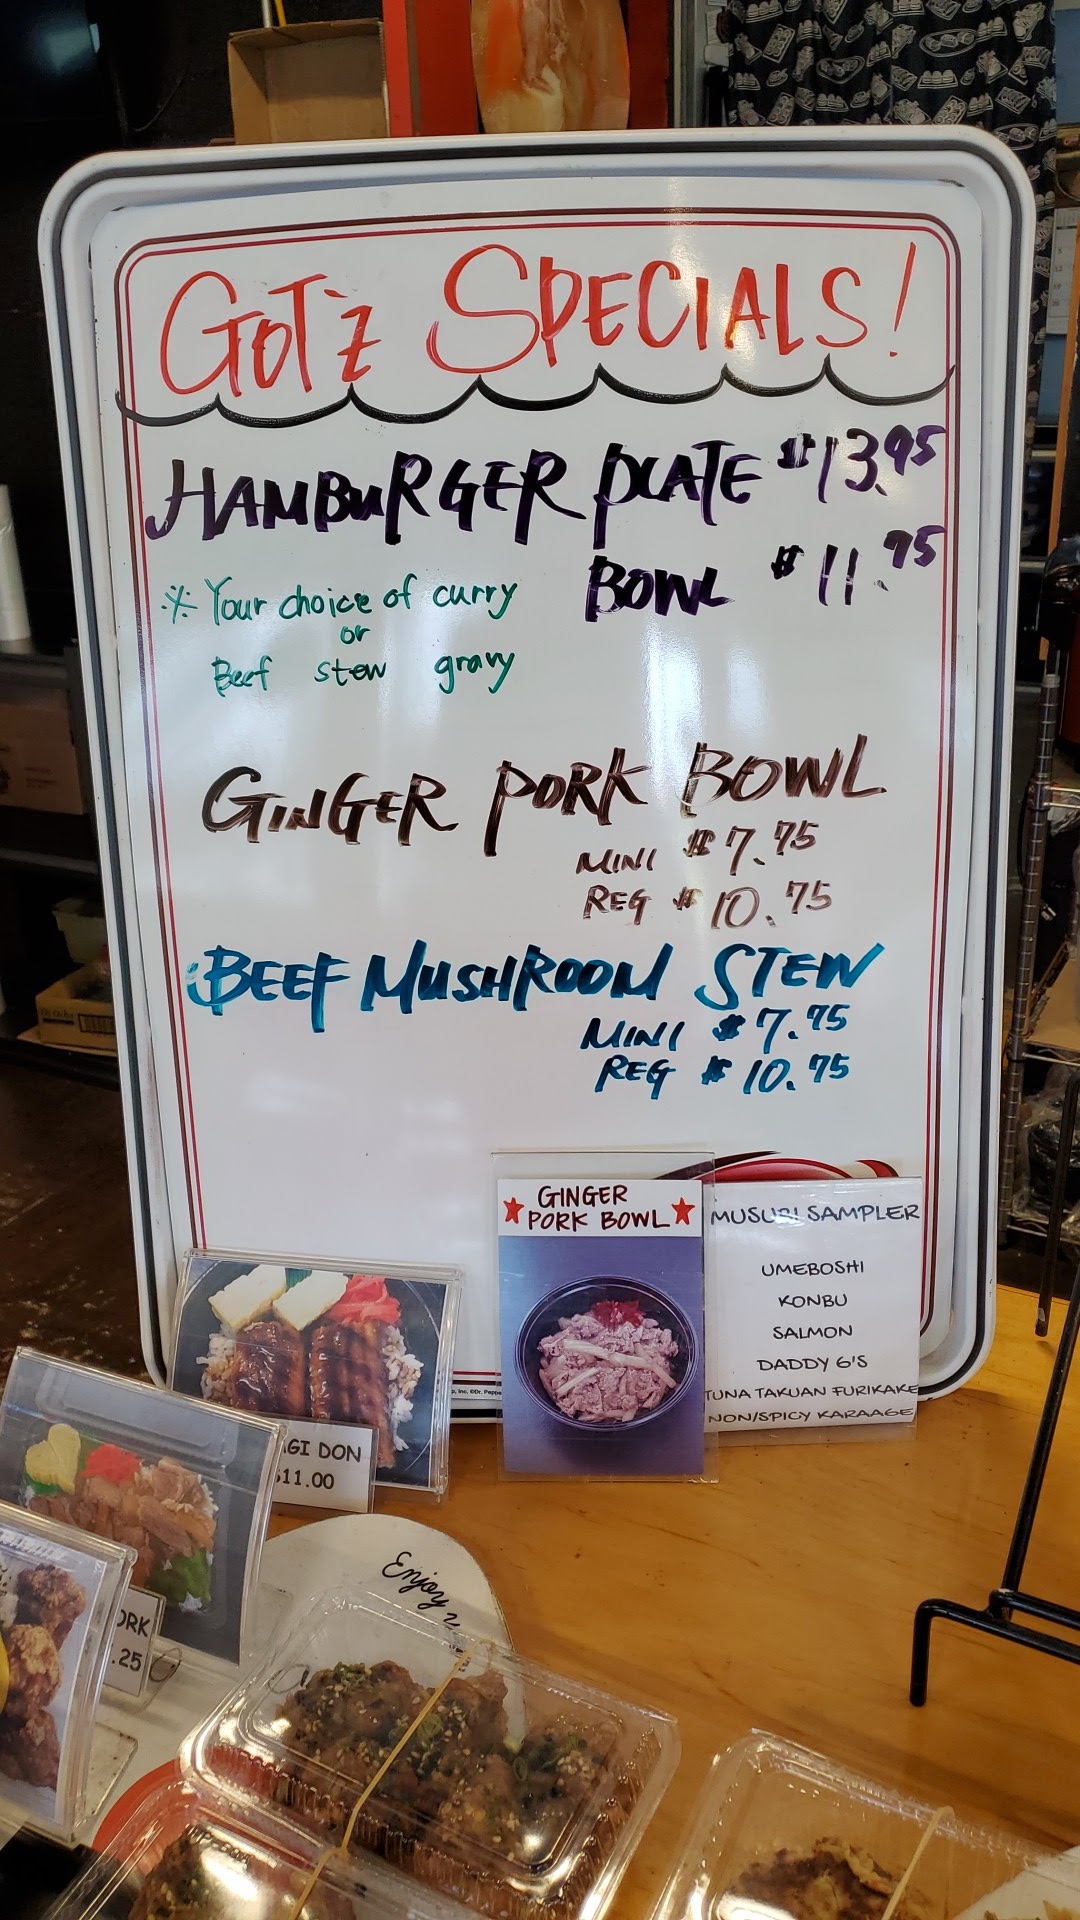 GOT'z SPECIALS!
HAMBURGER PLATE $13.95
BOWL $11.75
※ Your choice of curry
or
Beef stew gravy
GINGER PORK BOWL
MINI $7.75
REG $10.75
BEEF MUSHROOM STEW
MINI $7.75
REG $10.75
GINGER
PORK BOWL
MUSUBI SAMPLER
UMEBOSHI
KONBU
SALMON
DADDY G'S
TUNA TAKUAN FURIKAKE
NON/SPICY KARAAGE
AGI DON
$11.00
Enjoy
ORK
.25